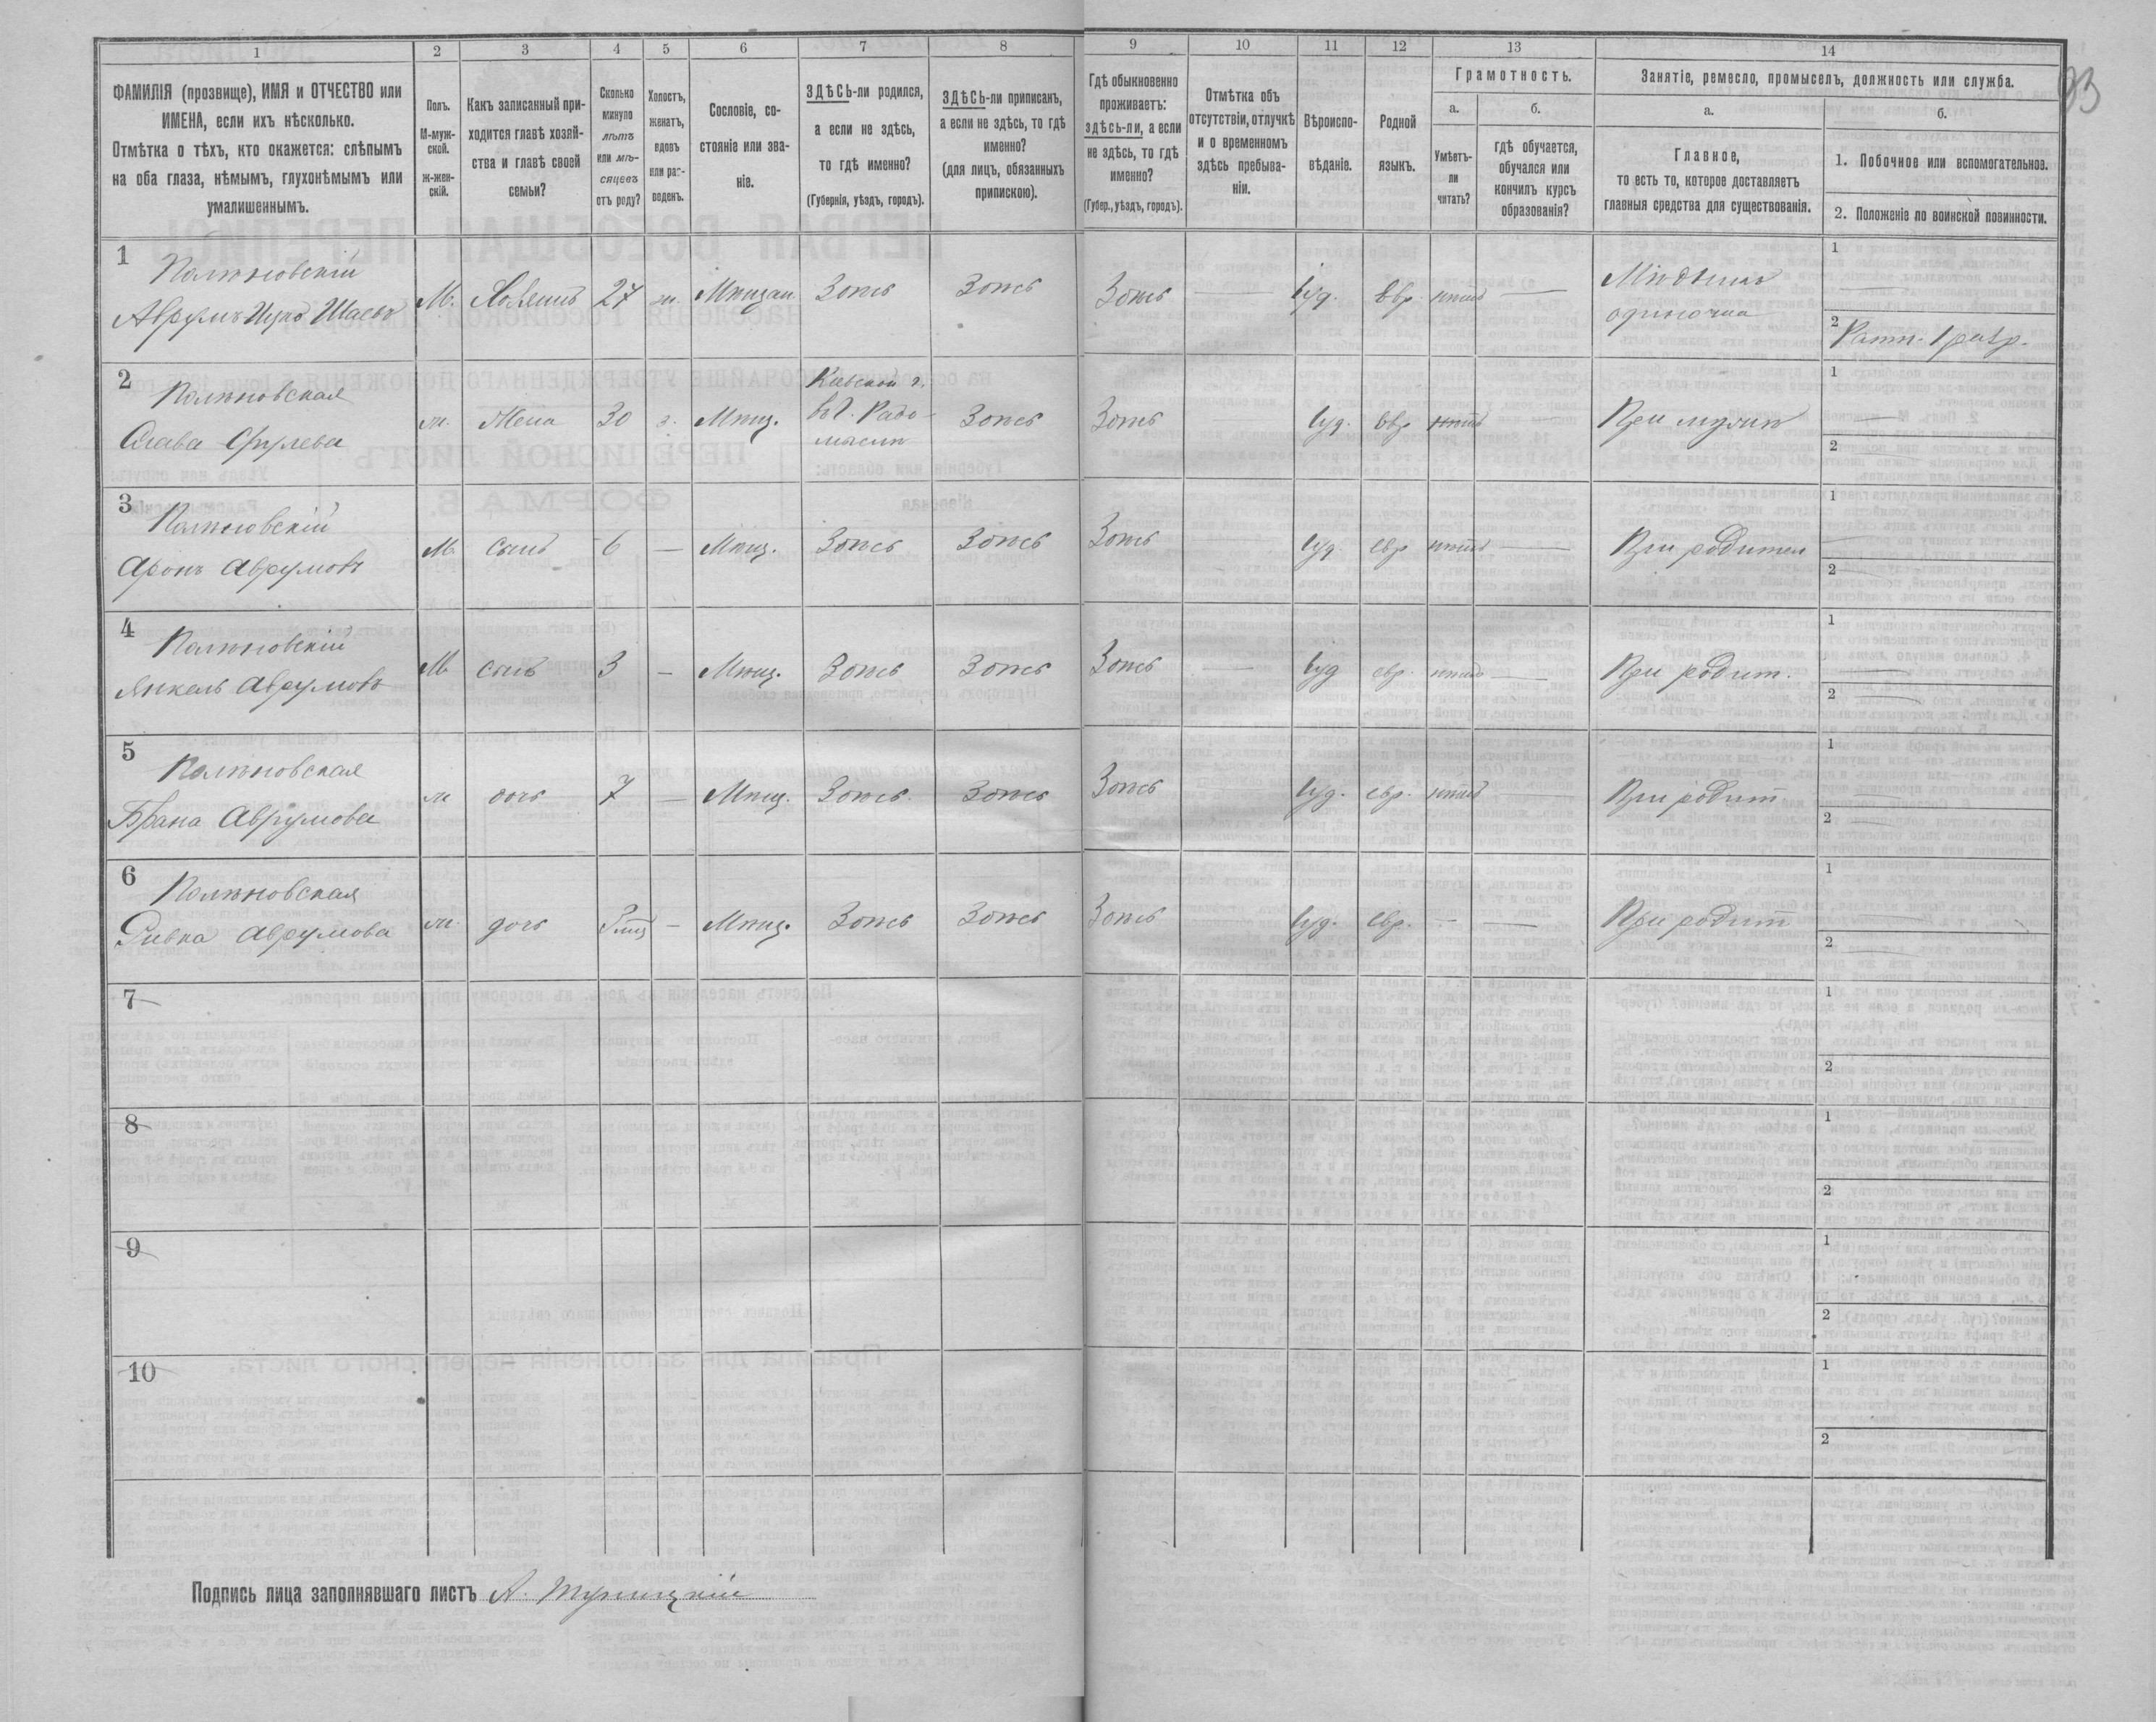 93
1 2 3 4 5 6 7 8 9 10 11 12 13 14
ФАМИЛІЯ (прозвище), ИМЯ и ОТЧЕСТВО или
ИМЕНА, если ихъ нѣсколько.
Отмѣтка о тѣхъ, кто окажется: слѣпымъ
на оба глаза, нѣмымъ, глухонѣмымъ или
умалишеннымъ.
Полъ.
М-муж-
ской.
ж-жен-
скій.
Какъ записанный при-
ходится главѣ хозяй-
ства и главѣ своей
семьи?
Сколько
минуло
лѣтъ
или мѣ-
сяцевъ
отъ роду?
Холостъ,
женатъ,
вдовъ
или раз-
веденъ.
Сословіе, со-
стояніе или зва-
ніе.
ЗДѢСЬ-ли родился,
а если не здѣсь,
то гдѣ именно?
(Губернія, уѣздъ, городъ).
ЗДѢСЬ-ли приписанъ,
а если не здѣсь, то гдѣ
именно?
(для лицъ, обязанныхъ
припискою).
Гдѣ обыкновенно
проживаетъ:
здѣсь-ли, а если
не здѣсь, то гдѣ
именно?
(Губер., уѣздъ, городъ).
Отмѣтка объ
отсутствіи, отлучкѣ
и о временномъ
здѣсь пребыва-
ніи.
Вѣроиспо-
вѣданіе.
Родной
языкъ.
Грамотность.
а.
Умѣетъ-
ли
читать?
б.
гдѣ обучается,
обучался или
кончилъ курсъ
образованія?
Занятіе, ремесло, промыселъ, должность или служба.
а.
Главное,
то есть то, которое доставляетъ
главныя средства для существованія.
б.
1. Побочное или вспомогательное.
2. Положеніе по воинской повинности.
1
Полѣновскій
Аврумъ Ицко Шаевъ
М. Хозяинъ 27 ж. Мѣщан Здѣсь Здѣсь Здѣсь — Іуд. Евр. нѣтъ —
Мѣдникъ
одиночка
1 —
2 Ратн. 1 разр.
2
Полѣновская
Слава Срулева
ж. Жена 30 з. Мѣщ.
Кіевской г.
въ г. Радо-
мыслѣ
Здѣсь Здѣсь Іуд. Евр нѣтъ
При мужѣ
1 —
2
3
Полѣновскій
Аронъ Аврумовъ
М. Сынъ 6 — Мѣщ. Здѣсь Здѣсь Здѣсь — Іуд. евр нѣтъ —
При родител
1 —
2 —
4
Полѣновскій
Янкель Аврумовъ
М. Сынъ 3 — Мѣщ. Здѣсь Здѣсь Здѣсь — Іуд евр. нѣтъ —
При родит.
1 —
2 —
5
Полѣновская
Брана Аврумова
ж дочь 7 — Мѣщ. Здѣсь. Здѣсь Здѣсь Іуд. евр. нѣтъ —
При родит
1 —
2 —
6
Полѣновская
Ривка Аврумова
ж. дочь — Мѣщ. Здѣсь Здѣсь Здѣсь Іуд. Евр. — —
При родит
1
2 —
7
1
2
8
1
2
9
1
2
10
1
2
Подпись лица заполнявшаго листъ